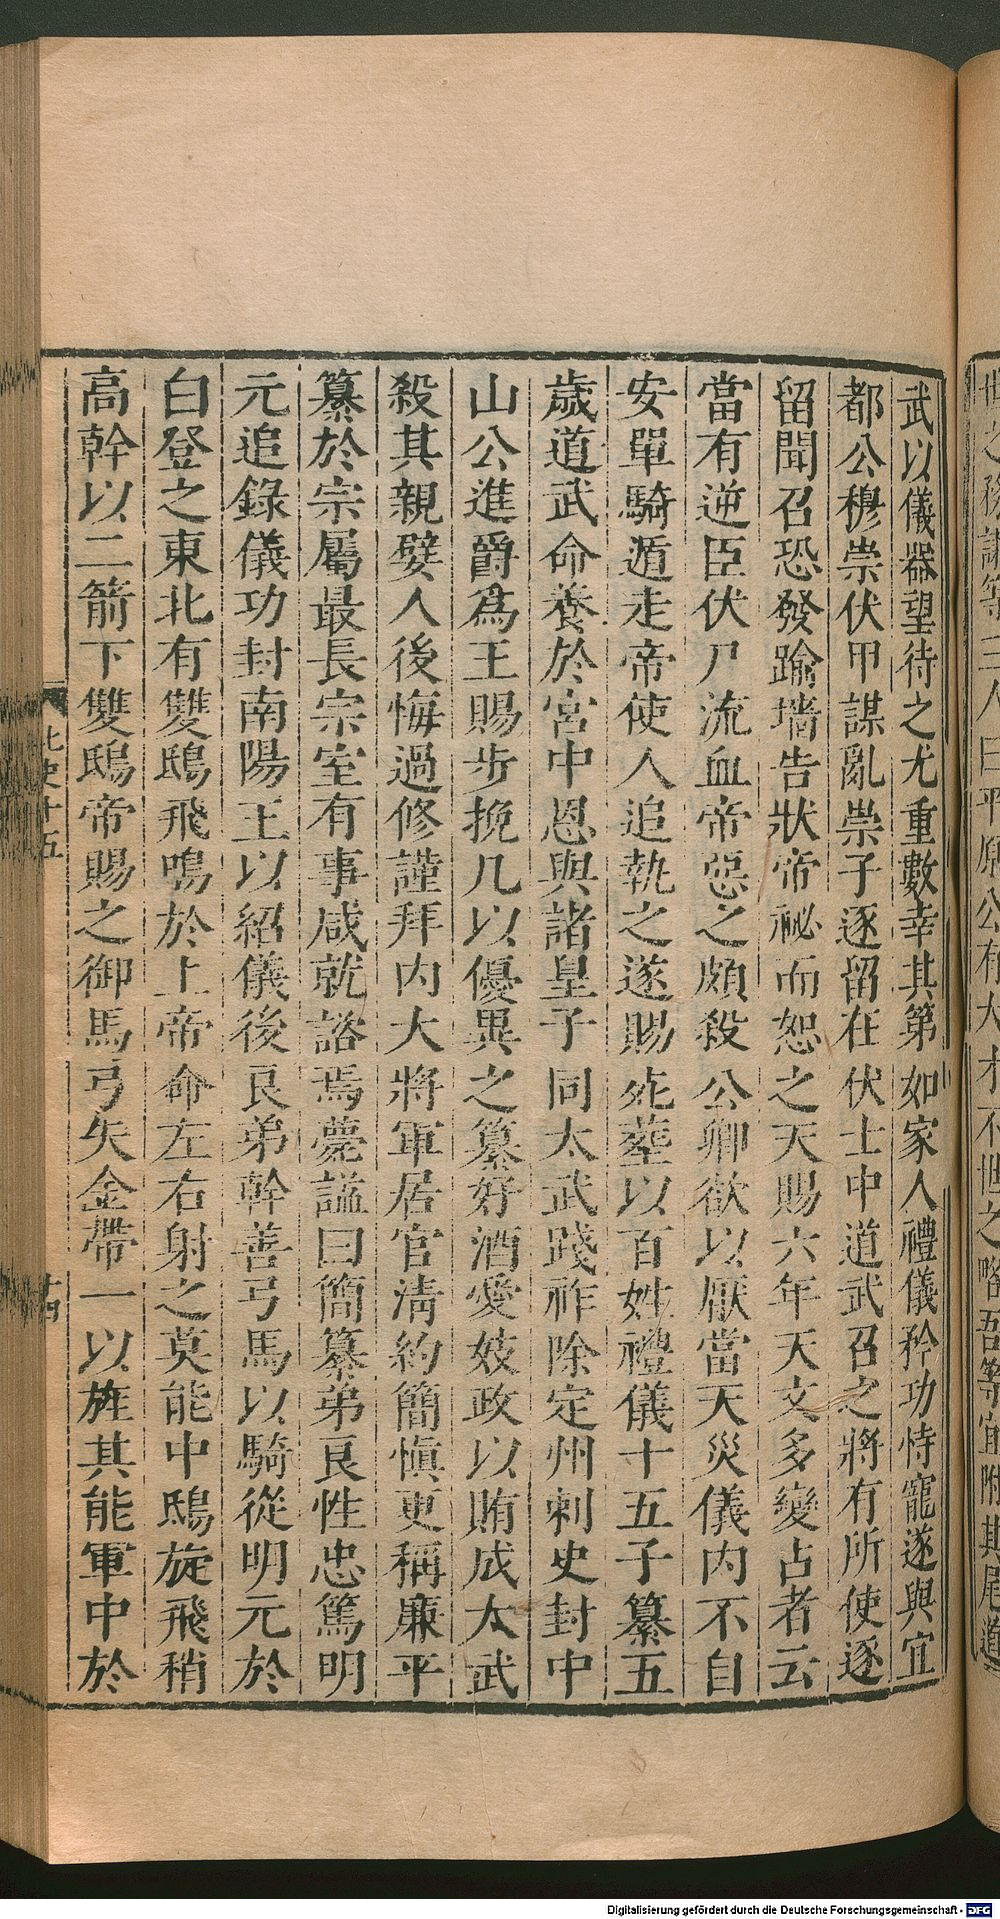 世之務謂等三人曰平原公有大才不世之略吾等宜附其尾道
武以儀器望待之尤重數幸其第如家人禮儀矜功恃寵遂與宜
都公穆崇伏甲謀亂崇子逐留在伏士中道武召之將有所使逐
留聞召恐發踰墻告狀帝祕而恕之天賜六年天文多變占者云
當有逆臣伏尸流血帝惡之頗殺公卿欲以厭當天災儀內不自
安單騎遁走帝使人追執之遂賜死葬以百姓禮儀十五子纂五
歲道武命養於宮中恩與諸皇子同太武踐祚除定州刺史封中
山公進爵爲王賜步挽几以優異之纂好酒愛妓政以賄成太武
殺其親嬖人後悔過修謹拜內大將軍居官清約簡愼更稱廉平
纂於宗屬最長宗室有事咸就諮焉薨謚曰簡纂弟良性忠篤明
元追錄儀功封南陽王以紹儀後良弟幹善弓馬以騎從明元於
白登之東北有雙鴟飛鳴於上帝命左右射之莫能中鴟旋飛稍
高幹以二箭下雙鴟帝賜之御馬弓矢金帶一以旌其能軍中於
北史十五
十四
Digitalisierung gefördert durch die Deutsche Forschungsgemeinschaft - DFG